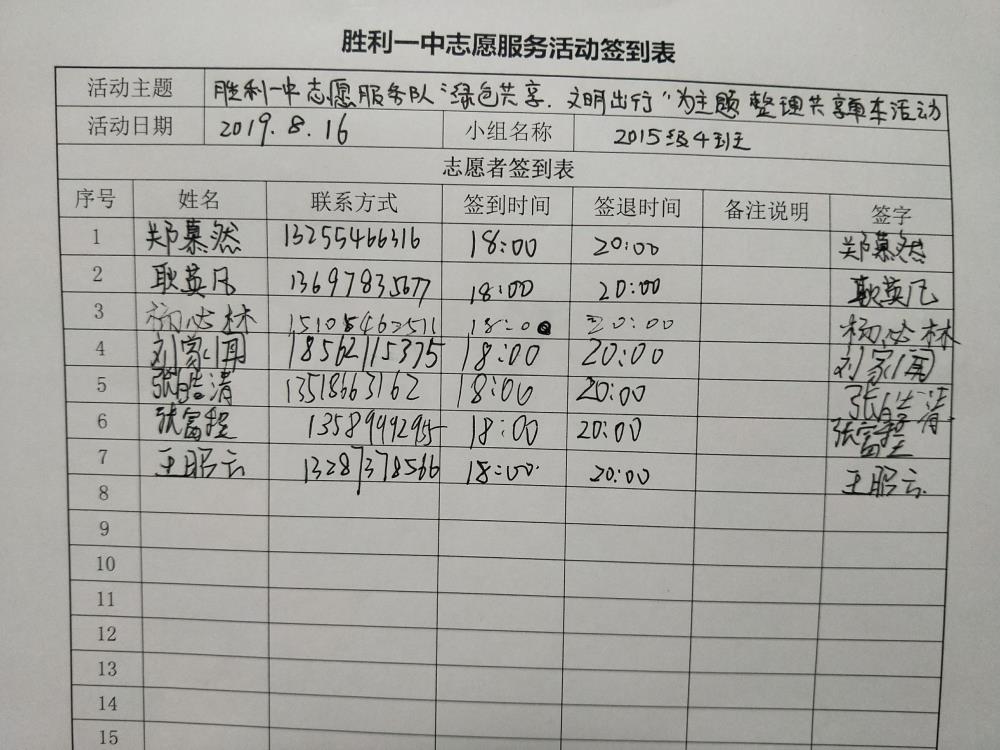 胜利一中志愿服务活动签到表
活动主题 胜利一中志愿服务队“绿色共享.文明出行”为主题整理共享单车活动
活动日期 2019.8.16 小组名称 2015级4班
志愿者签到表
序号 姓名 联系方式 签到时间 签退时间 备注说明 签字
1 郑慕然 13255466316 18:00 20:00 郑慕然
2 耿英凡 13697835677 18:00 20:00 耿英凡
3 杨必林 15105462511 18:00 20:00 杨必林
4 刘家 18562115375 18:00 20:00 刘家
5 张皓清 13518663162 18:00 20:00 张皓清
6 张富程 18:00 20:00 张富程
7 王昭云 13287378566 18:00 20:00 王昭云
8
9
10
11
12
13
14
15